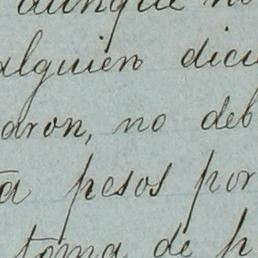 aunque no
alguien dici
aron, no deb
ta pesos por
toma de p